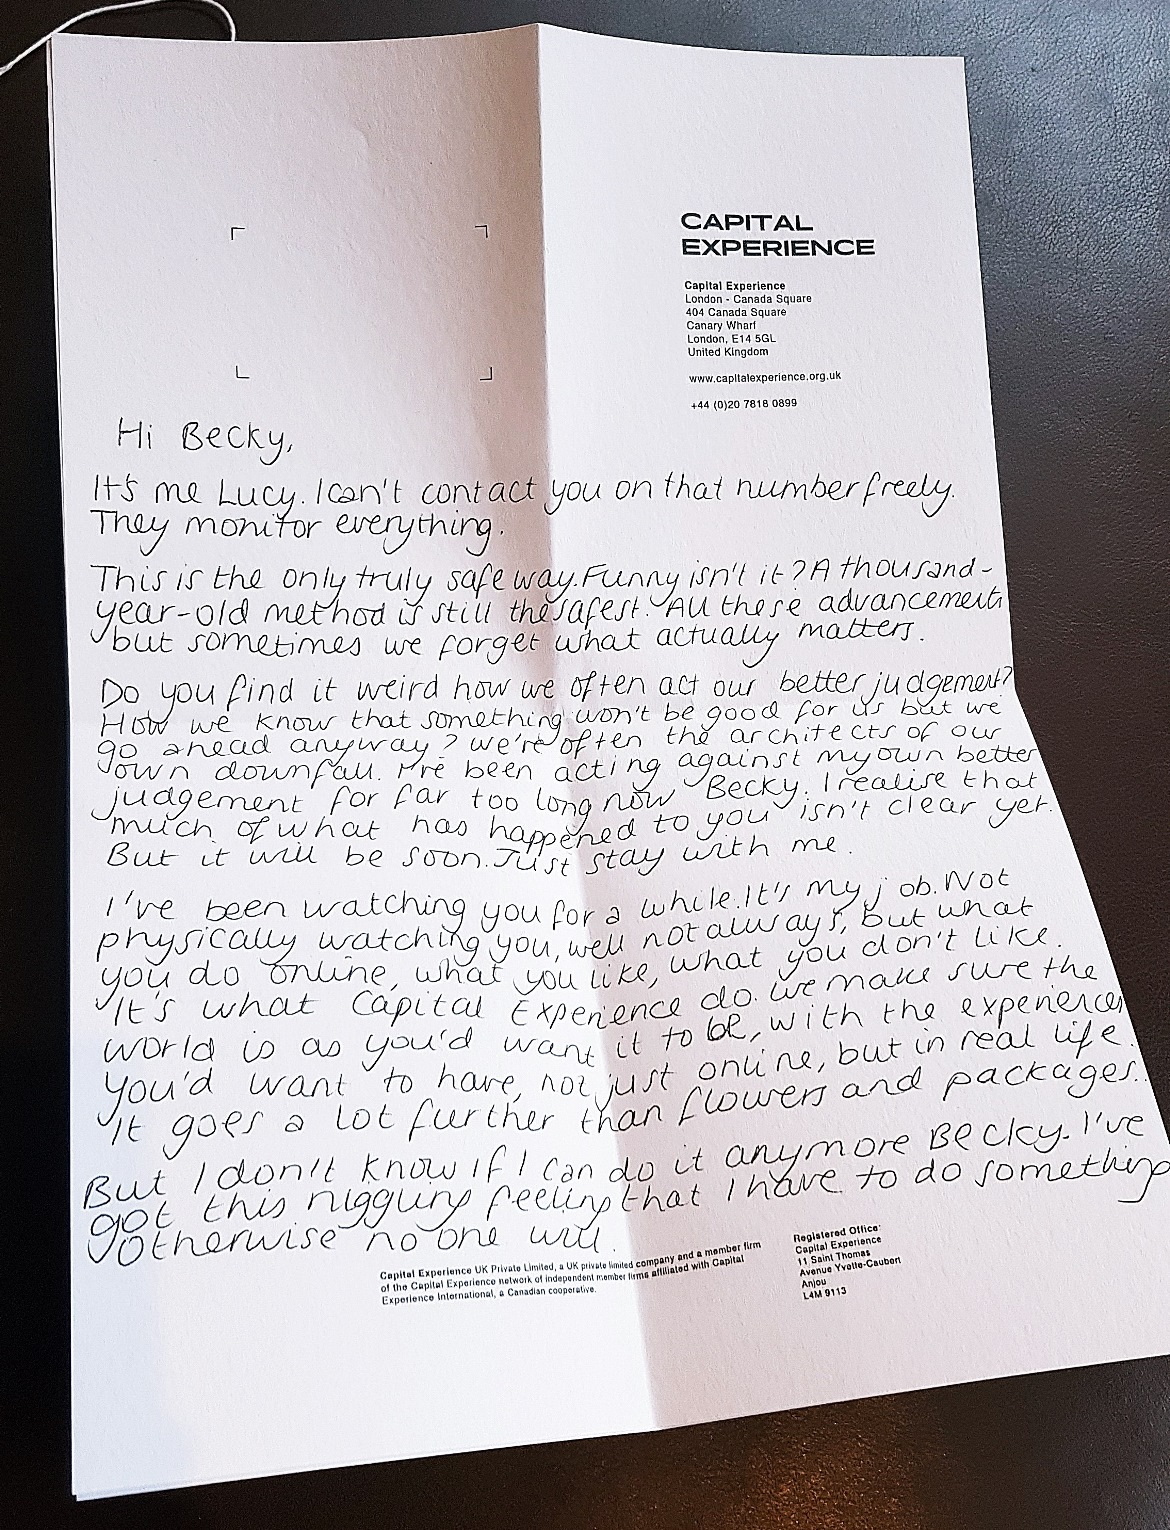 CAPITAL
EXPERIENCE
Capital Experience
London - Canada Square
404 Canada Square
Canary Wharf
London, E14 5GL
United Kingdom
www.capitalexperience.org.uk
+44 (0)20 7818 0899
Hi Becky,
It's me Lucy. I can't contact you on that number freely.
They monitor everything.
This is the only truly safe way. Funny isn't it? A thousand-
year-old method is still the safest. All these advancements
but sometimes we forget what actually matters.
Do you find it weird how we often act our better judgement?
How we know that something won't be good for us but we
go ahead anyway? We're often the architects of our
own downfall. I've been acting against my own better
judgement for far too long now Becky. I realise that
much of what has happened to you isn't clear yet.
But it will be soon. Just stay with me.
I've been watching you for a while. It's my job. Not
physically watching you, well not always, but what
you do online, what you like, what you don't like.
It's what Capital Experience do. We make sure the
world is as you'd want it to be, with the experiences
you'd want to have, not just online, but in real life.
It goes a lot further than flowers and packages..
But I don't know if I can do it anymore Becky. I've
got this niggling feeling that I have to do something
otherwise no one will.
Capital Experience UK Private Limited, a UK private limited company and a member firm
of the Capital Experience network of independent member firms affiliated with Capital
Experience International, a Canadian cooperative.
Registered Office:
Capital Experience
11 Saint Thomas
Avenue Yvette-Caubert
Anjou
L4M 9113